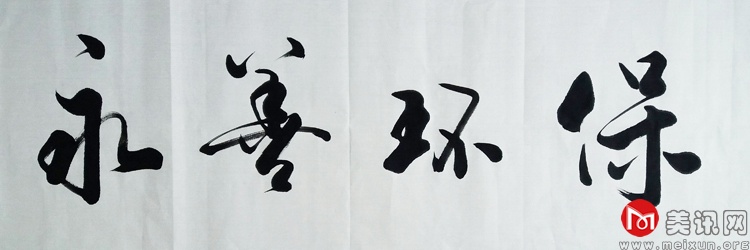 永善环保
美讯网
www.meixun.org